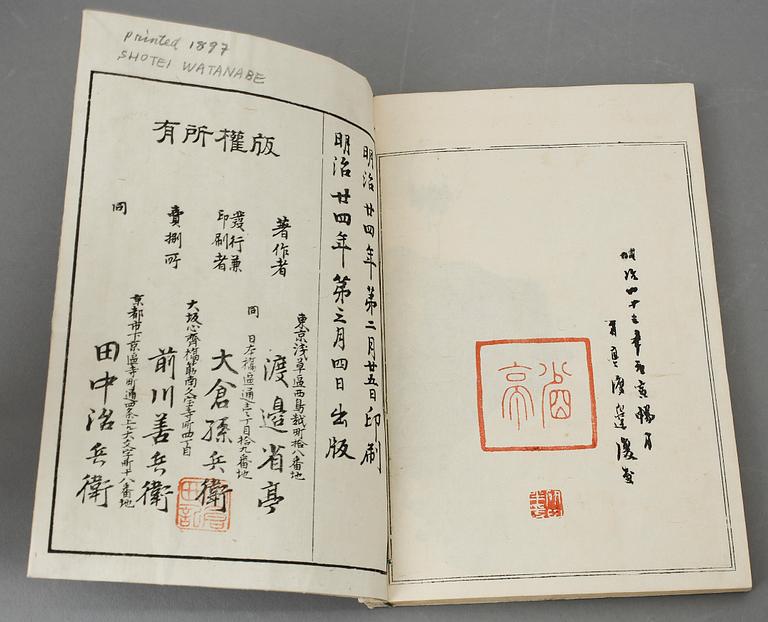 Printed 1897
SHOTEI WATANABE
明治廿四年第二月廿五日印刷
明治廿四年第三月四日出版
版權所有
著作者
東京浅草區西鳥越町拾八番地
渡邉省亭
發行兼
印刷者
同 日本橋區通壱丁目拾九番地
大倉孫兵衛
賣捌所
大坂心齋橋筋南久宝寺町四丁目
前川善兵衛
同
京都市下京區寺町通四条上ル大文字町十八番地
田中治兵衛
省亭